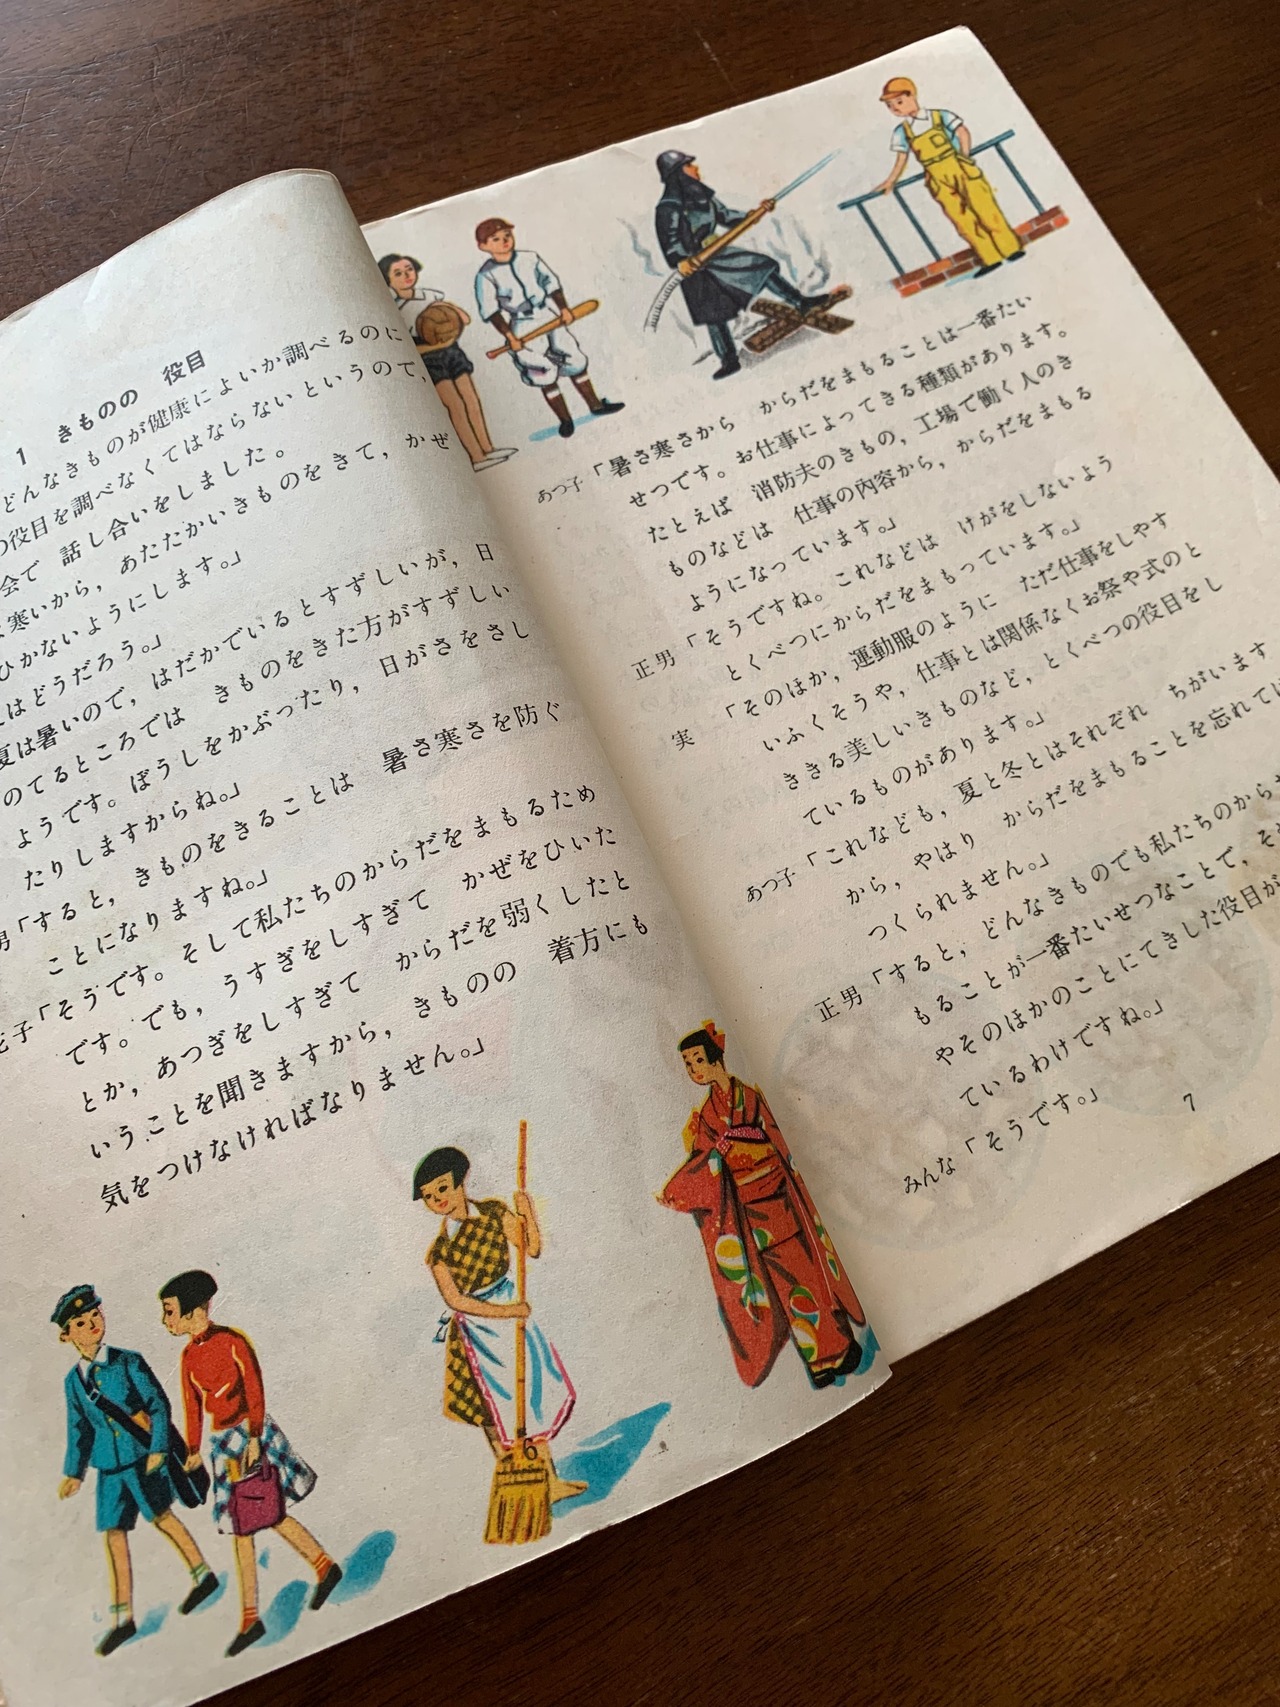 1　きものの　役目
どんなきものが健康によいか調べるのに
の役目を調べなくてはならないというので，
会で　話し合いをしました。
寒いから，あたたかいきものをきて，かぜ
ひかないようにします。」
はどうだろう。」
夏は暑いので，はだかでいるとすずしいが，日
のてるところでは　きものをきた方がすずしい
ようです。ぼうしをかぶったり，日がさをさし
たりしますからね。」
男「すると，きものをきることは　暑さ寒さを防ぐ
ことになりますね。」
子「そうです。そして私たちのからだをまもるため
です。でも，うすぎをしすぎて　かぜをひいた
とか，あつぎをしすぎて　からだを弱くしたと
いうことを聞きますから，きものの　着方にも
気をつけなければなりません。」
6
あつ子「暑さ寒さから　からだをまもることは一番たい
せつです。お仕事によってきる種類があります。
たとえば　消防夫のきもの，工場で働く人のき
ものなどは　仕事の内容から，からだをまもる
ようになっています。」
正男「そうですね。これなどは　けがをしないよう
とくべつにからだをまもっています。」
実「そのほか，運動服のように　ただ仕事をしやす
いふくそうや，仕事とは関係なくお祭や式のと
ききる美しいきものなど，とくべつの役目をし
ているものがあります。」
あつ子「これなども，夏と冬とはそれぞれ　ちがいます
から，やはり　からだをまもることを忘れては
つくられません。」
正男「すると，どんなきものでも私たちのからだ
もることが一番たいせつなことで，
やそのほかのことにてきした役目が
ているわけですね。」
みんな「そうです。」
7